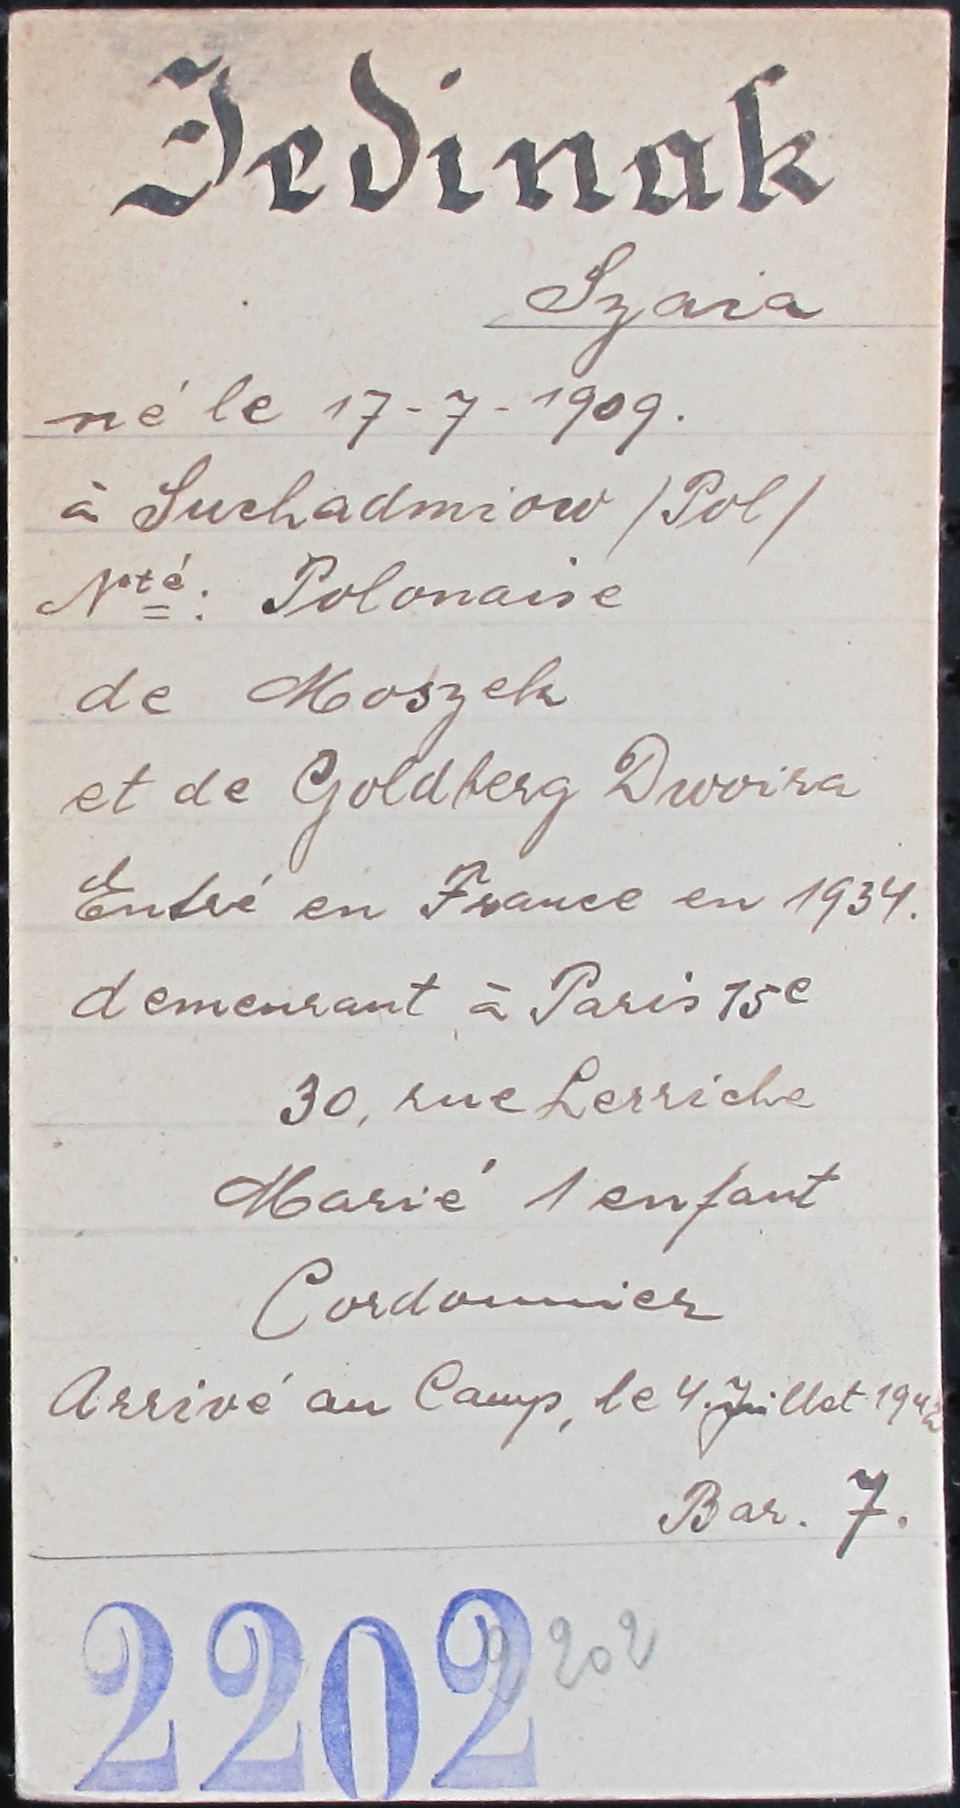 Jedinak
Szaia
né le 17-7-1909.
à Suchadmiow /Pol/
Nté: Polonaise
de Moszek
et de Goldberg Dwoira
Entré en France en 1934.
demeurant à Paris 15e
30, rue Lerriche
Marié 1 enfant
Cordonnier
Arrivé au Camp, le 4.Juillet 1942
Bar. 7.
2202 2202